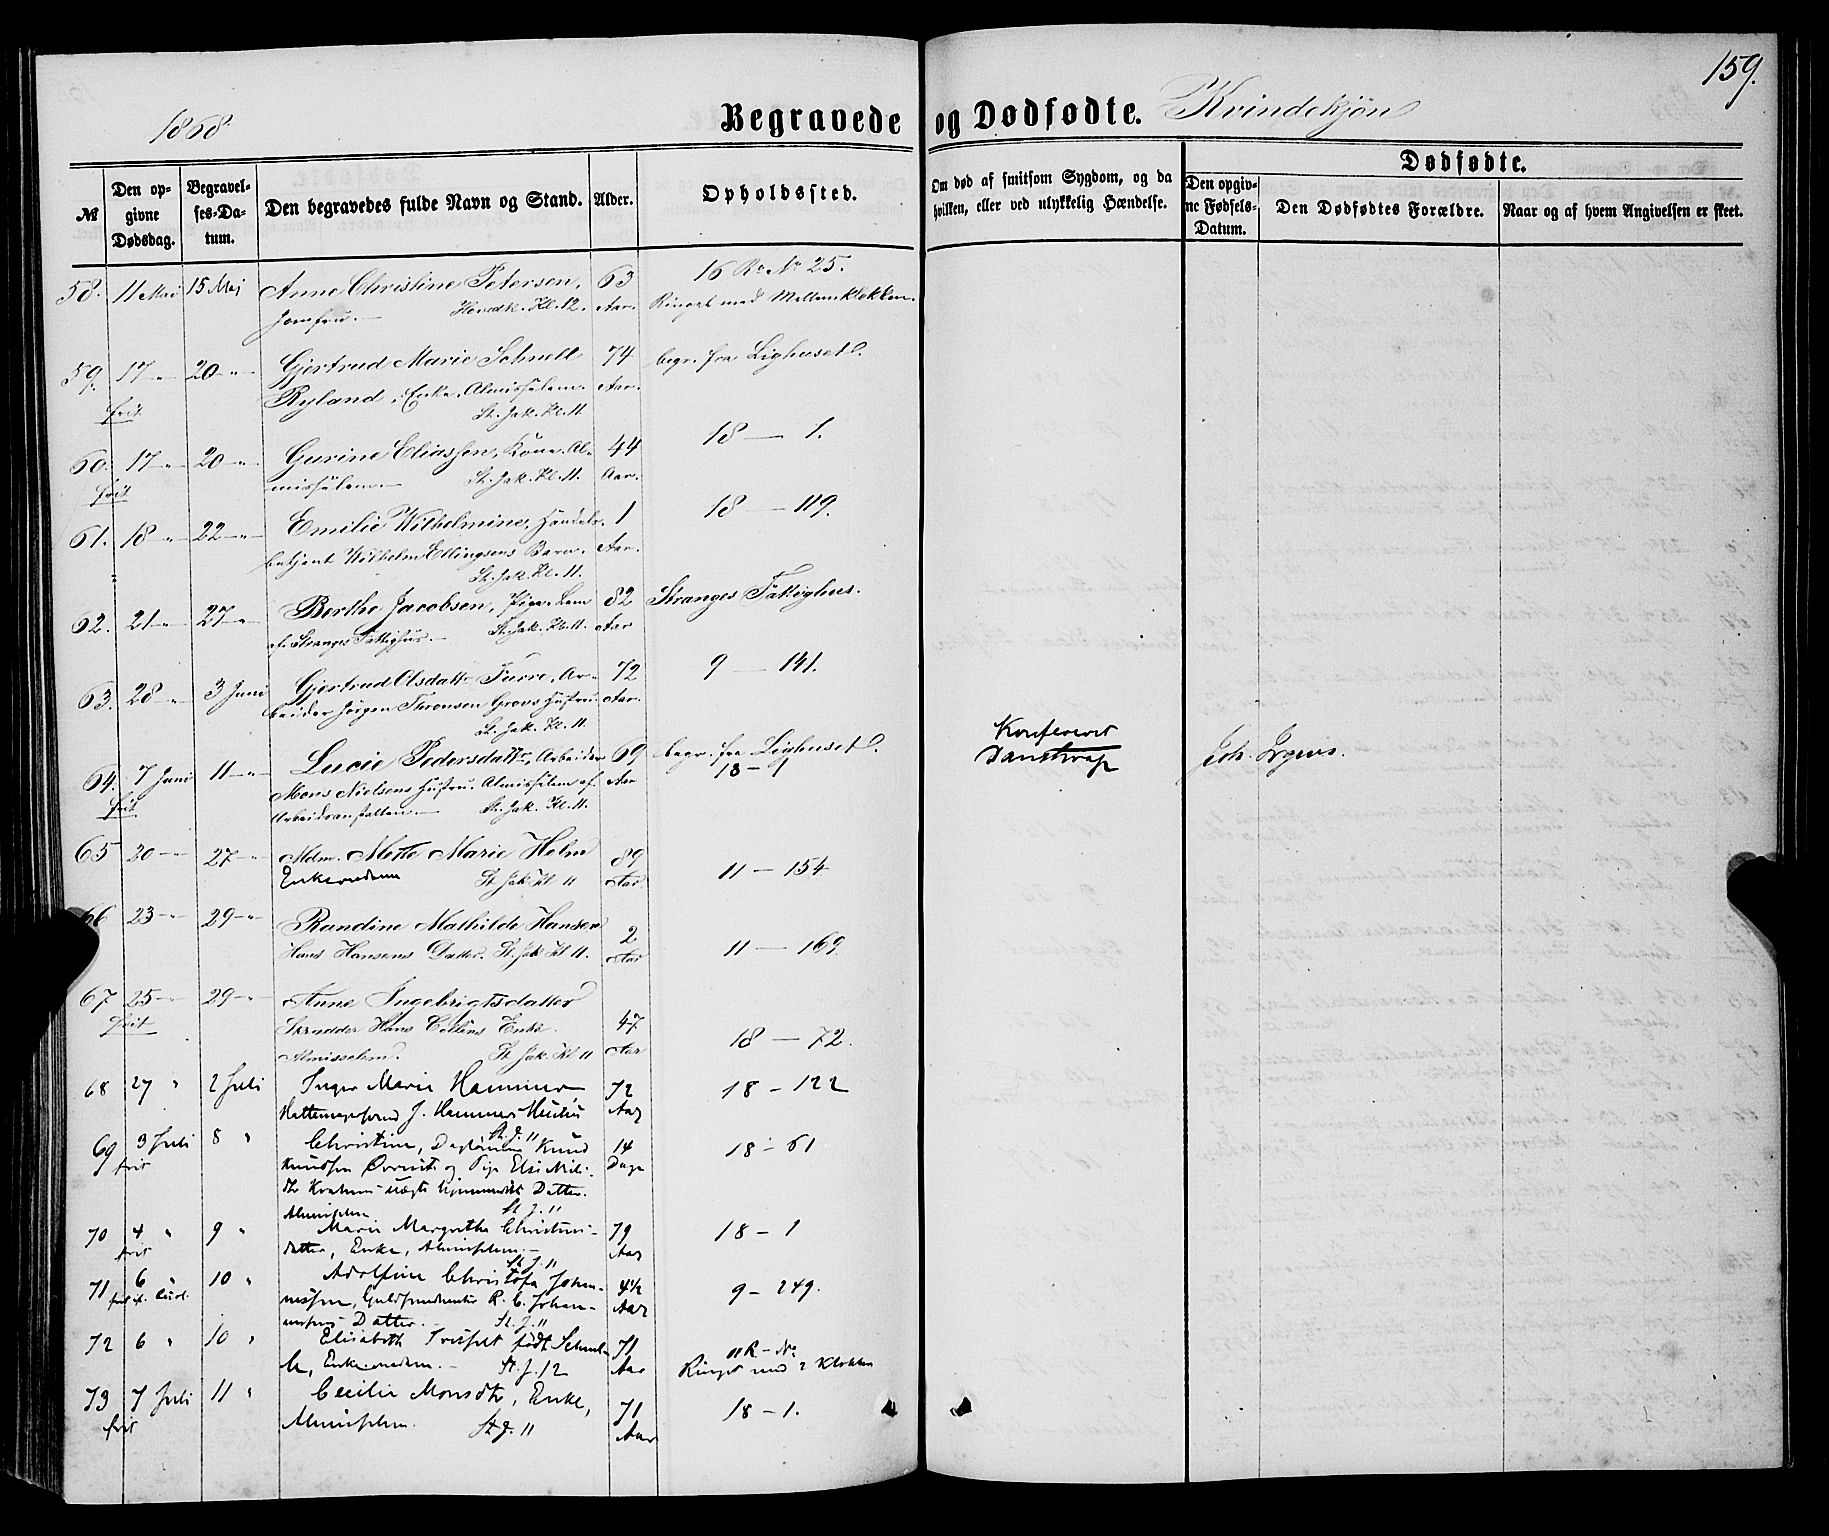 159.
1868.
Begravede og Dødfødte. Kvindekjøn
№
Den opgivne Dødsdag.
Begravelses-Datum.
Den begravedes fulde Navn og Stand.
Alder.
Opholdssted.
Om død af smitsom Sygdom, og da hvilken, eller ved ulykkelig Hændelse.
Dødfødte.
Den opgivne Fødsels-Datum.
Den Dødfødtes Forældre.
Naar og af hvem Angivelsen er skeet.
58. 11 Mai 15 Maj Anne Christine Petersen, 63 16 R. No 25.
Jomfru.— Hovedk. Kl. 12. Aar. Ringet med Mellemklokken.
59. 17 " 20 " Gjertrud Marie Schnell 74 begr. fra Lighuset.
frit Ryland, Enke, Almisselem. Aar.
St. Jak. Kl. 11.
60. 17 " 20 " Gurine Eliassen, Kone. Al- 44 18 — 1.
frit misselem.— St. Jak. Kl. 11. Aar.
61. 18 " 22 " Emilie Wilhelmine, Handels- 1 18 — 119.
betjent Wilhelm Ellingsens Barn. Aar.
St. Jak. Kl. 11.
62. 21 " 27 " Berthe Jacobsen, Pige. Lem 82 Stranges Fattighus.
af Stranges Fattighus.— St. Jak. Kl. 11. Aar
63. 28 " 3 Juni Gjertrud Olsdatter Furre, Ar- 72 9 — 141.
beider Jørgen Thronsen Grovs Hustru Aar.
St. Jak. Kl. 11.
64. 7 Juni 11 " Lucie Pedersdatter, Arbeider 69 begr. fra Lighuset.
frit Mons Nielsens Hustru. Almisselem af Aar 18 — 1
Arbeidsanstalten.— St. Jak. Kl. 11.
Konfereret
Danstrup Joh.
65 20 " 27 " Mdm. Mette Marie Holm 89 11 — 154
Enkemadam St Jak Kl 11 Aar
66 23 " 29 " Randine Mathilde Hansen 2 11 — 169.
Hans Hansens Datter. St. Jak Kl 11. Aar
67 25 " 29 " Anne Ingebrigtsdatter
frit Skrædder Hans Enke. 47 18 — 72.
Almisselem. St. Jak. Kl 11 Aar
68 27 " 2 Juli Inger Marie Hammer 72 18 — 122
J. Hammers Hustru Aar
St. J. 11
69 3 Juli 8 " Christine, Daglønner Knud 14 18 — 61
frit Knudsen og Pige Elsi Nils- Dage
dtr uægte Datter.
Almisselem St. J. 11
70 4 " 9 " Marie Margrethe Christens- 79 18 — 1
frit datter, Enke, Almisselem.— Aar
St. J. 11
71 6 10 " Adolfine Christofa Johan- 4½ 9 — 249.
nessen, Guldsmedsvend R. C. Johan- Aar
nessens Datter.— St. J. 11
72 6 " 10 " Elisabeth født 71 11 R — No
Enkemadam.— St. J. 12 Aar Ringet med 2 Klokken
73 7 Juli 11 " Cecilie Monsdtr, Enke, 71 18 — 1.
frit Almisselem. St. J. 11 Aar